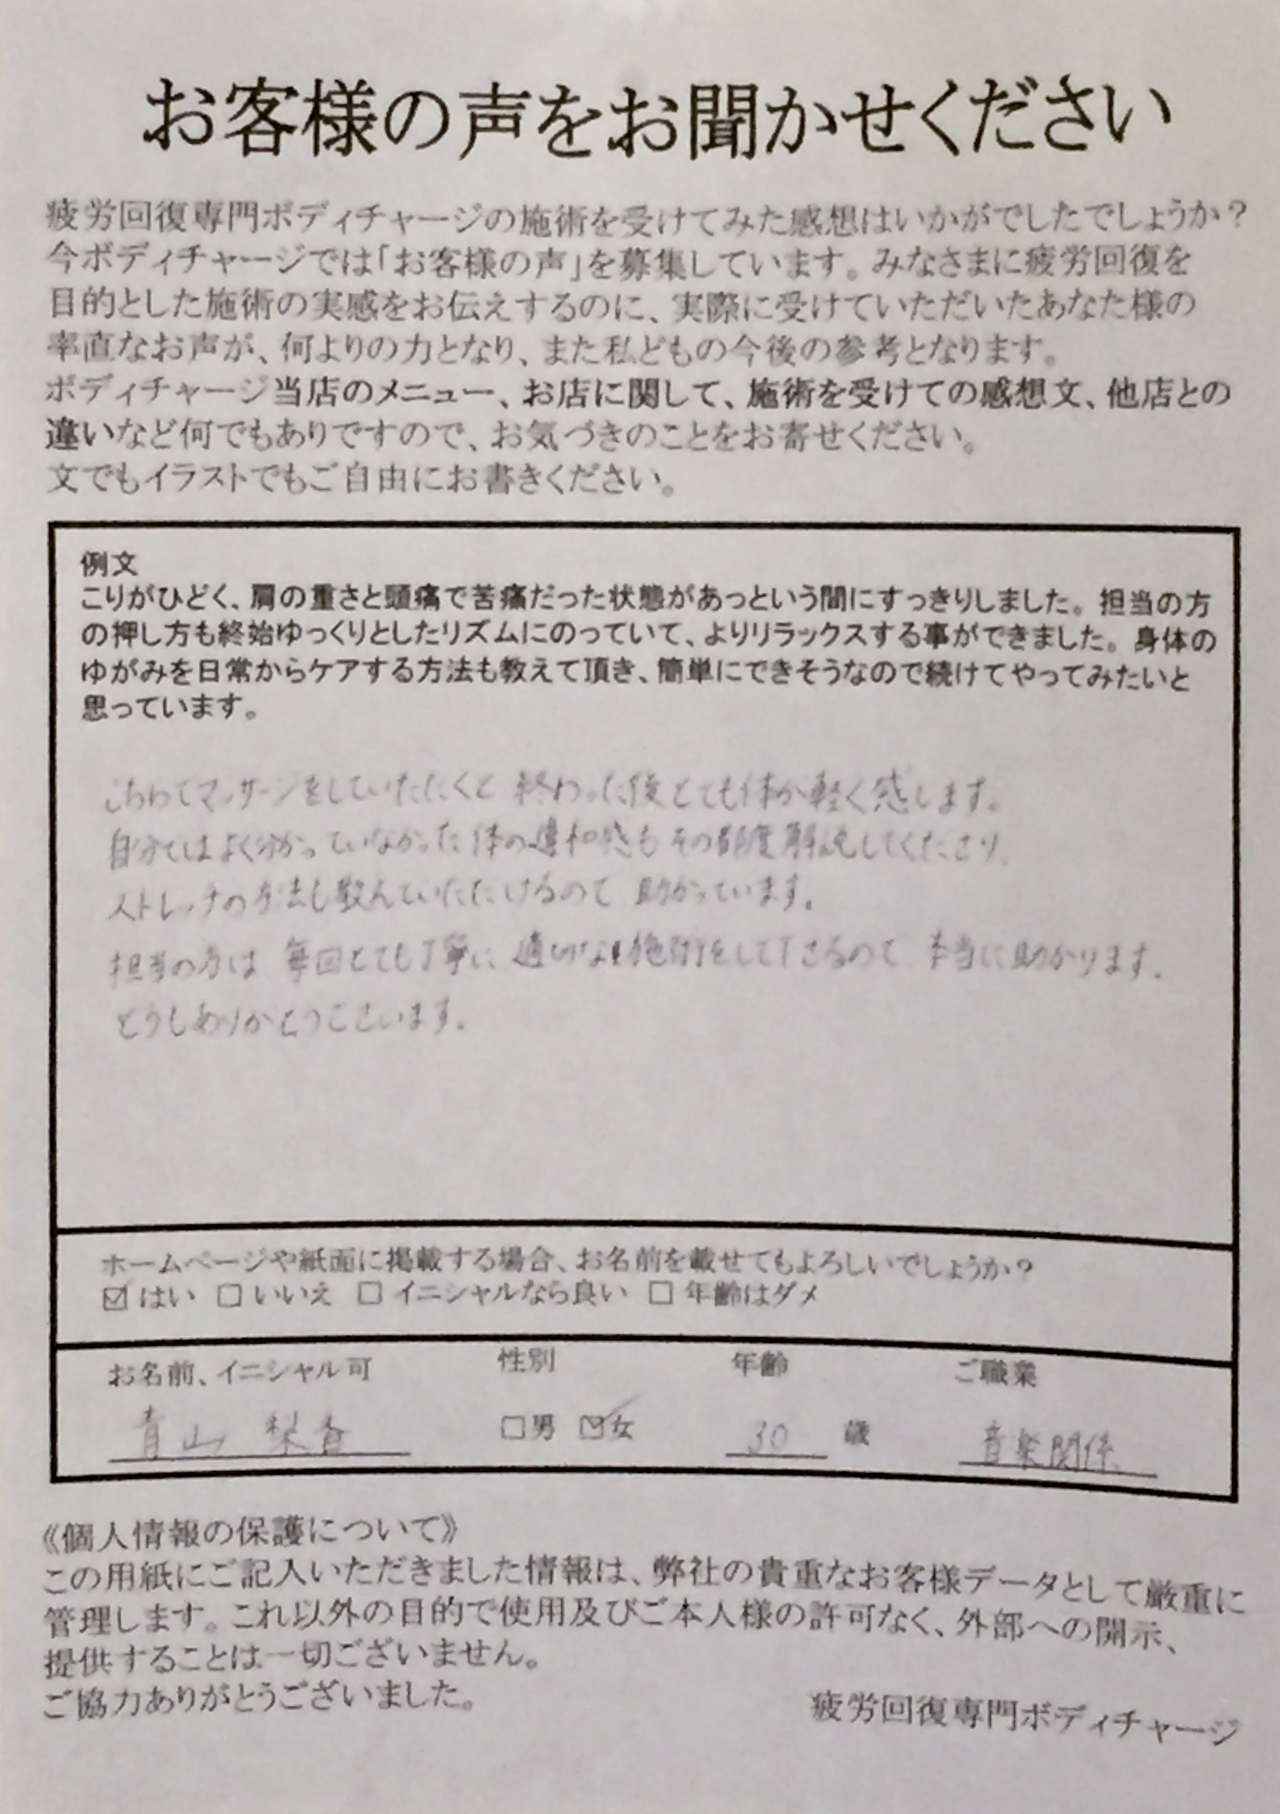 お客様の声をお聞かせください
疲労回復専門ボディチャージの施術を受けてみた感想はいかがでしたでしょうか？
今ボディチャージでは「お客様の声」を募集しています。みなさまに疲労回復を
目的とした施術の実感をお伝えするのに、実際に受けていただいたあなた様の
率直なお声が、何よりの力となり、また私どもの今後の参考となります。
ボディチャージ当店のメニュー、お店に関して、施術を受けての感想文、他店との
違いなど何でもありですので、お気づきのことをお寄せください。
文でもイラストでもご自由にお書きください。
例文
こりがひどく、肩の重さと頭痛で苦痛だった状態があっという間にすっきりしました。担当の方
の押し方も終始ゆっくりとしたリズムにのっていて、よりリラックスする事ができました。身体の
ゆがみを日常からケアする方法も教えて頂き、簡単にできそうなので続けてやってみたいと
思っています。
こちらでマッサージをしていただくと 終わった後とても体が軽く感じます。
自分ではよく分かっていなかった体の違和感もその都度解説してくださり、
ストレッチの方法も教えていただけるので 助かっています。
担当の方は 毎回とても丁寧に 適切な施術をして下さるので、本当に助かります。
どうもありがとうございます。
ホームページや紙面に掲載する場合、お名前を載せてもよろしいでしょうか？
☑ はい □ いいえ □ イニシャルなら良い □ 年齢はダメ
お名前、イニシャル可 性別 年齢 ご職業
青山 梨香 □男 ☑女 30 歳 音楽関係
《個人情報の保護について》
この用紙にご記入いただきました情報は、弊社の貴重なお客様データとして厳重に
管理します。これ以外の目的で使用及びご本人様の許可なく、外部への開示、
提供することは一切ございません。
ご協力ありがとうございました。
疲労回復専門ボディチャージ